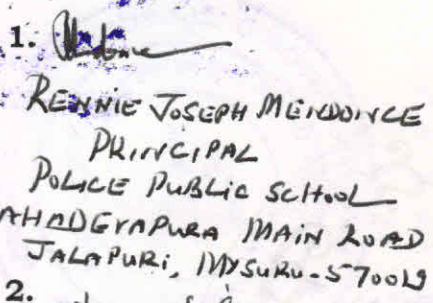 1.
RENNIE JOSEPH MENDONCE
PRINCIPAL
POLICE PUBLIC SCHOOL
AHADEVAPURA MAIN ROAD
JALAPURI, MYSURU-570019
2.